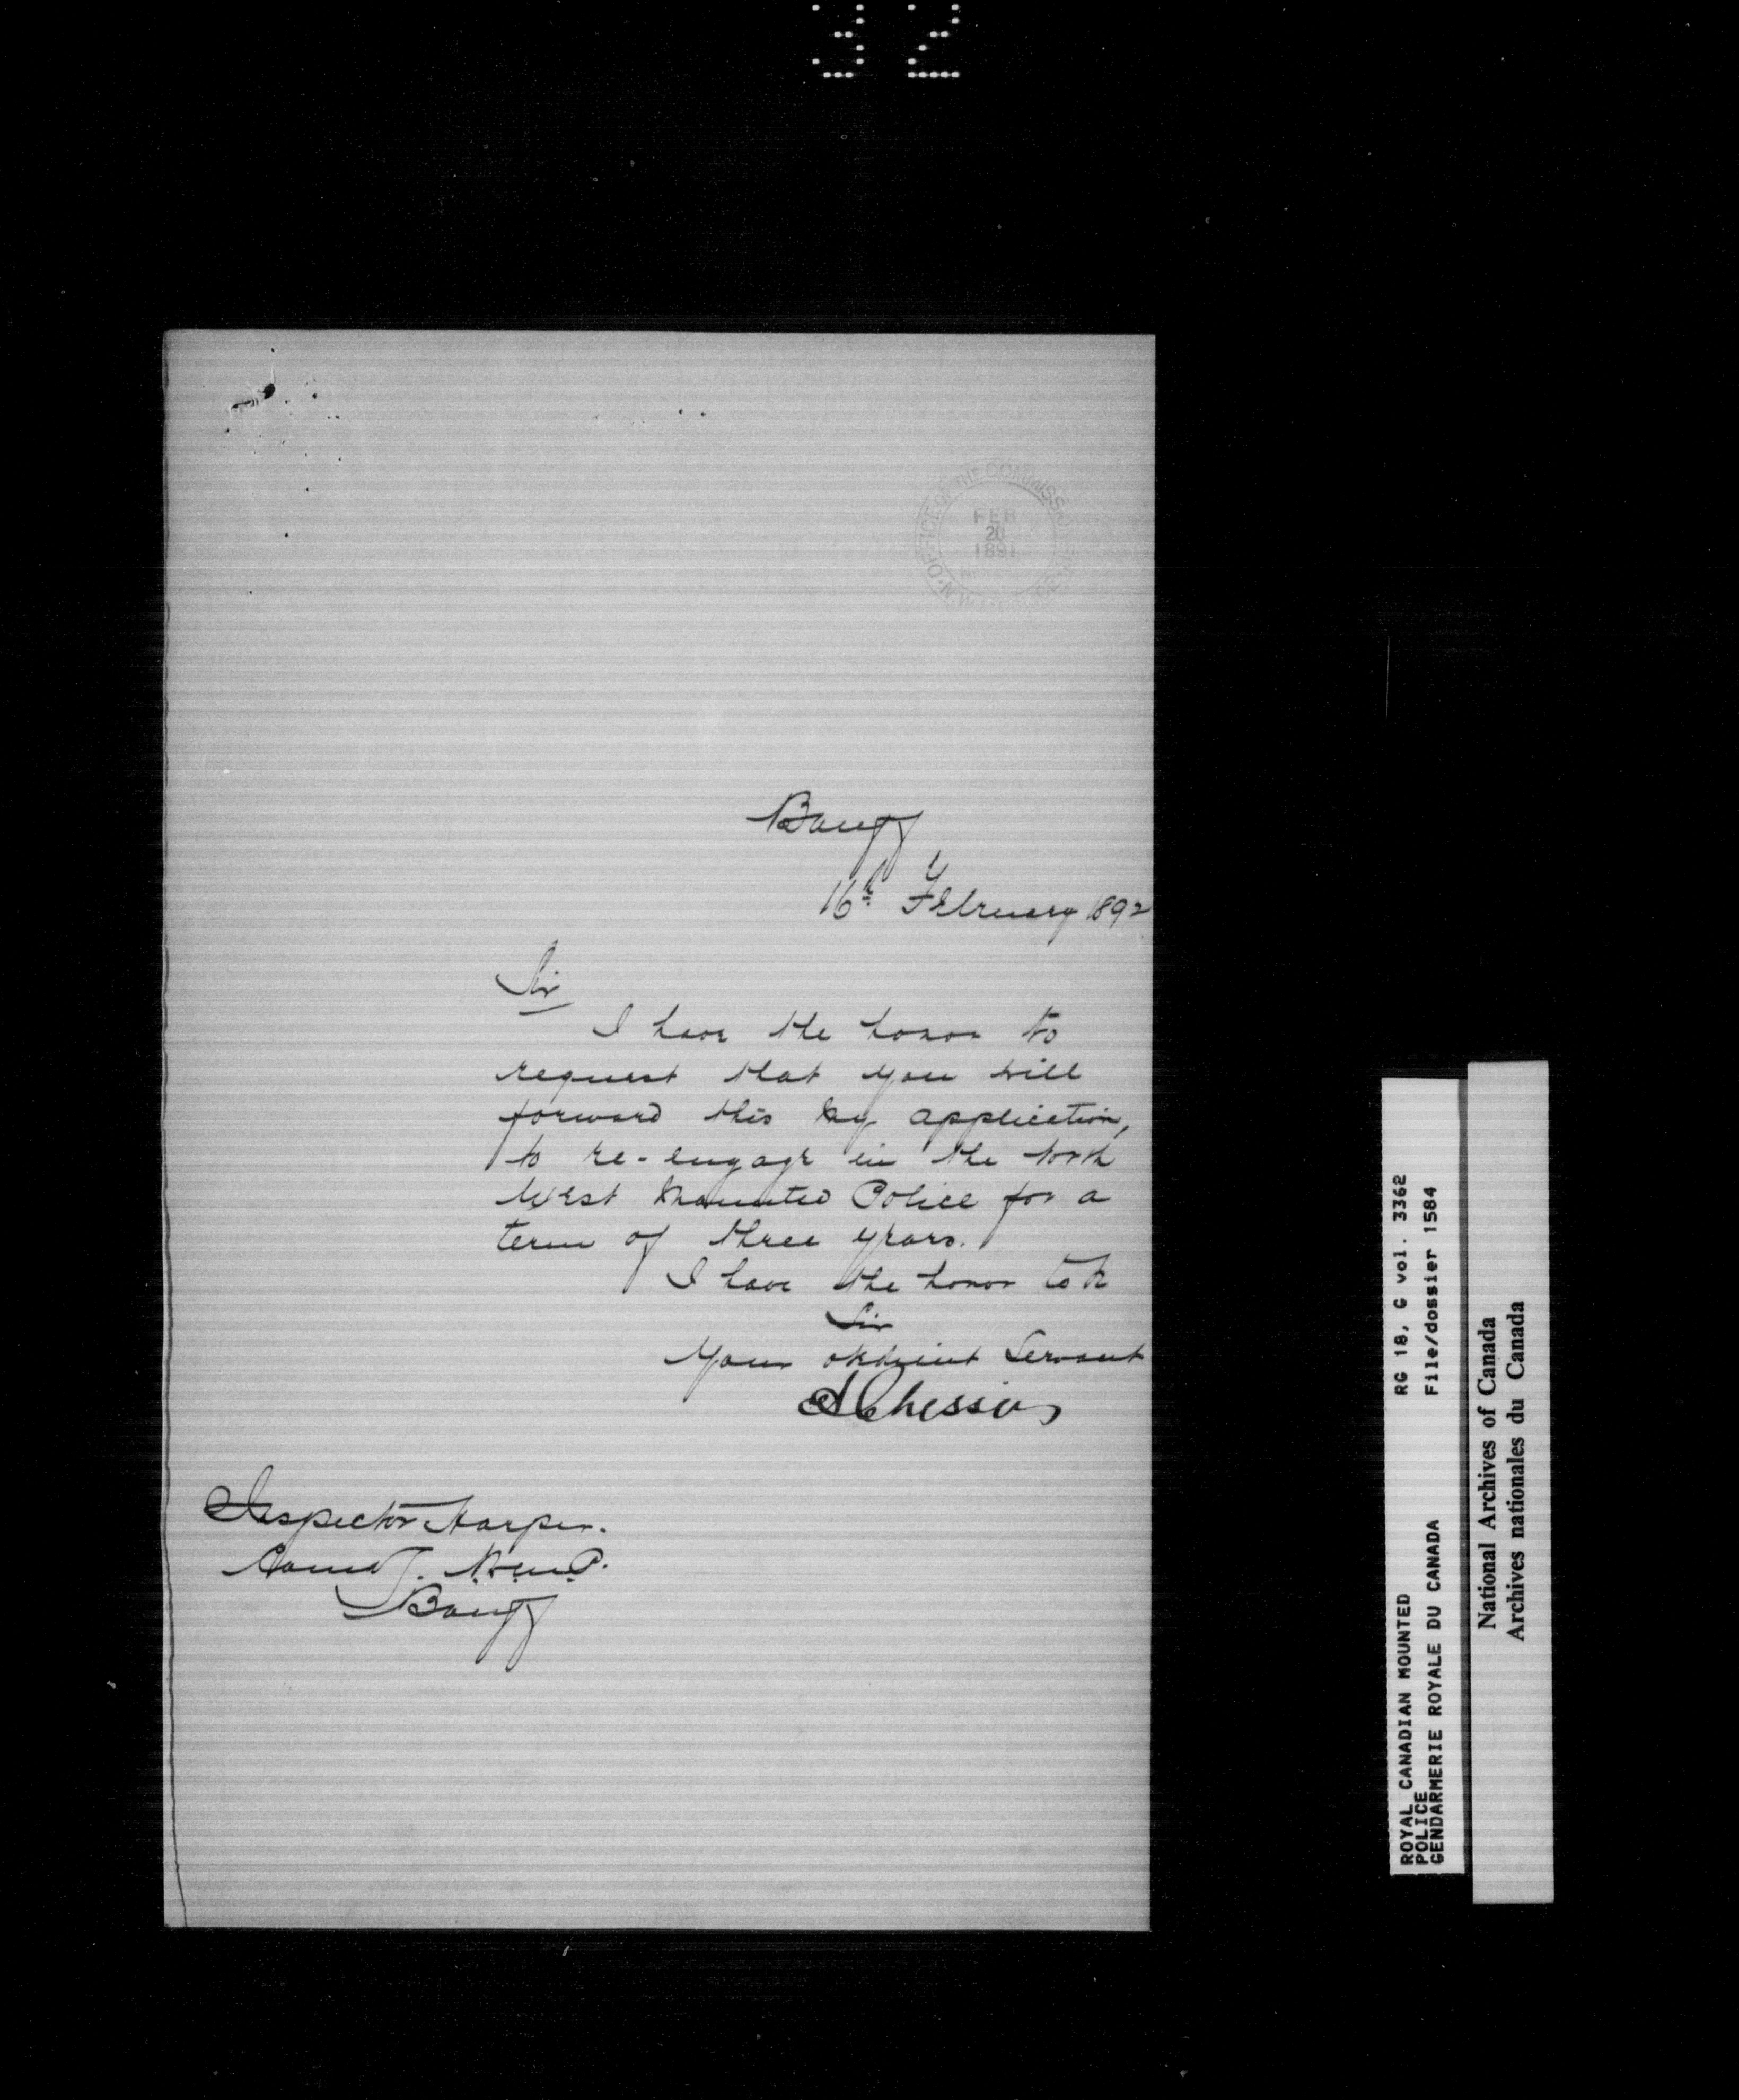 32
OFFICE OF THE COMMISSIONER
FEB
20
1891
Banff
16th February 1892
Sir
I have the honor to
request that you will
forward this my application,
to re-engage in the North
West Mounted Police for a
term of three years.
I have the honor to be
Sir
Your obedient Servant
Inspector Harper.
Comdg. N.W.M.P.
Banff
RG 18, G vol. 3362
File/dossier 1584
ROYAL CANADIAN MOUNTED
POLICE
GENDARMERIE ROYALE DU CANADA
National Archives of Canada
Archives nationales du Canada